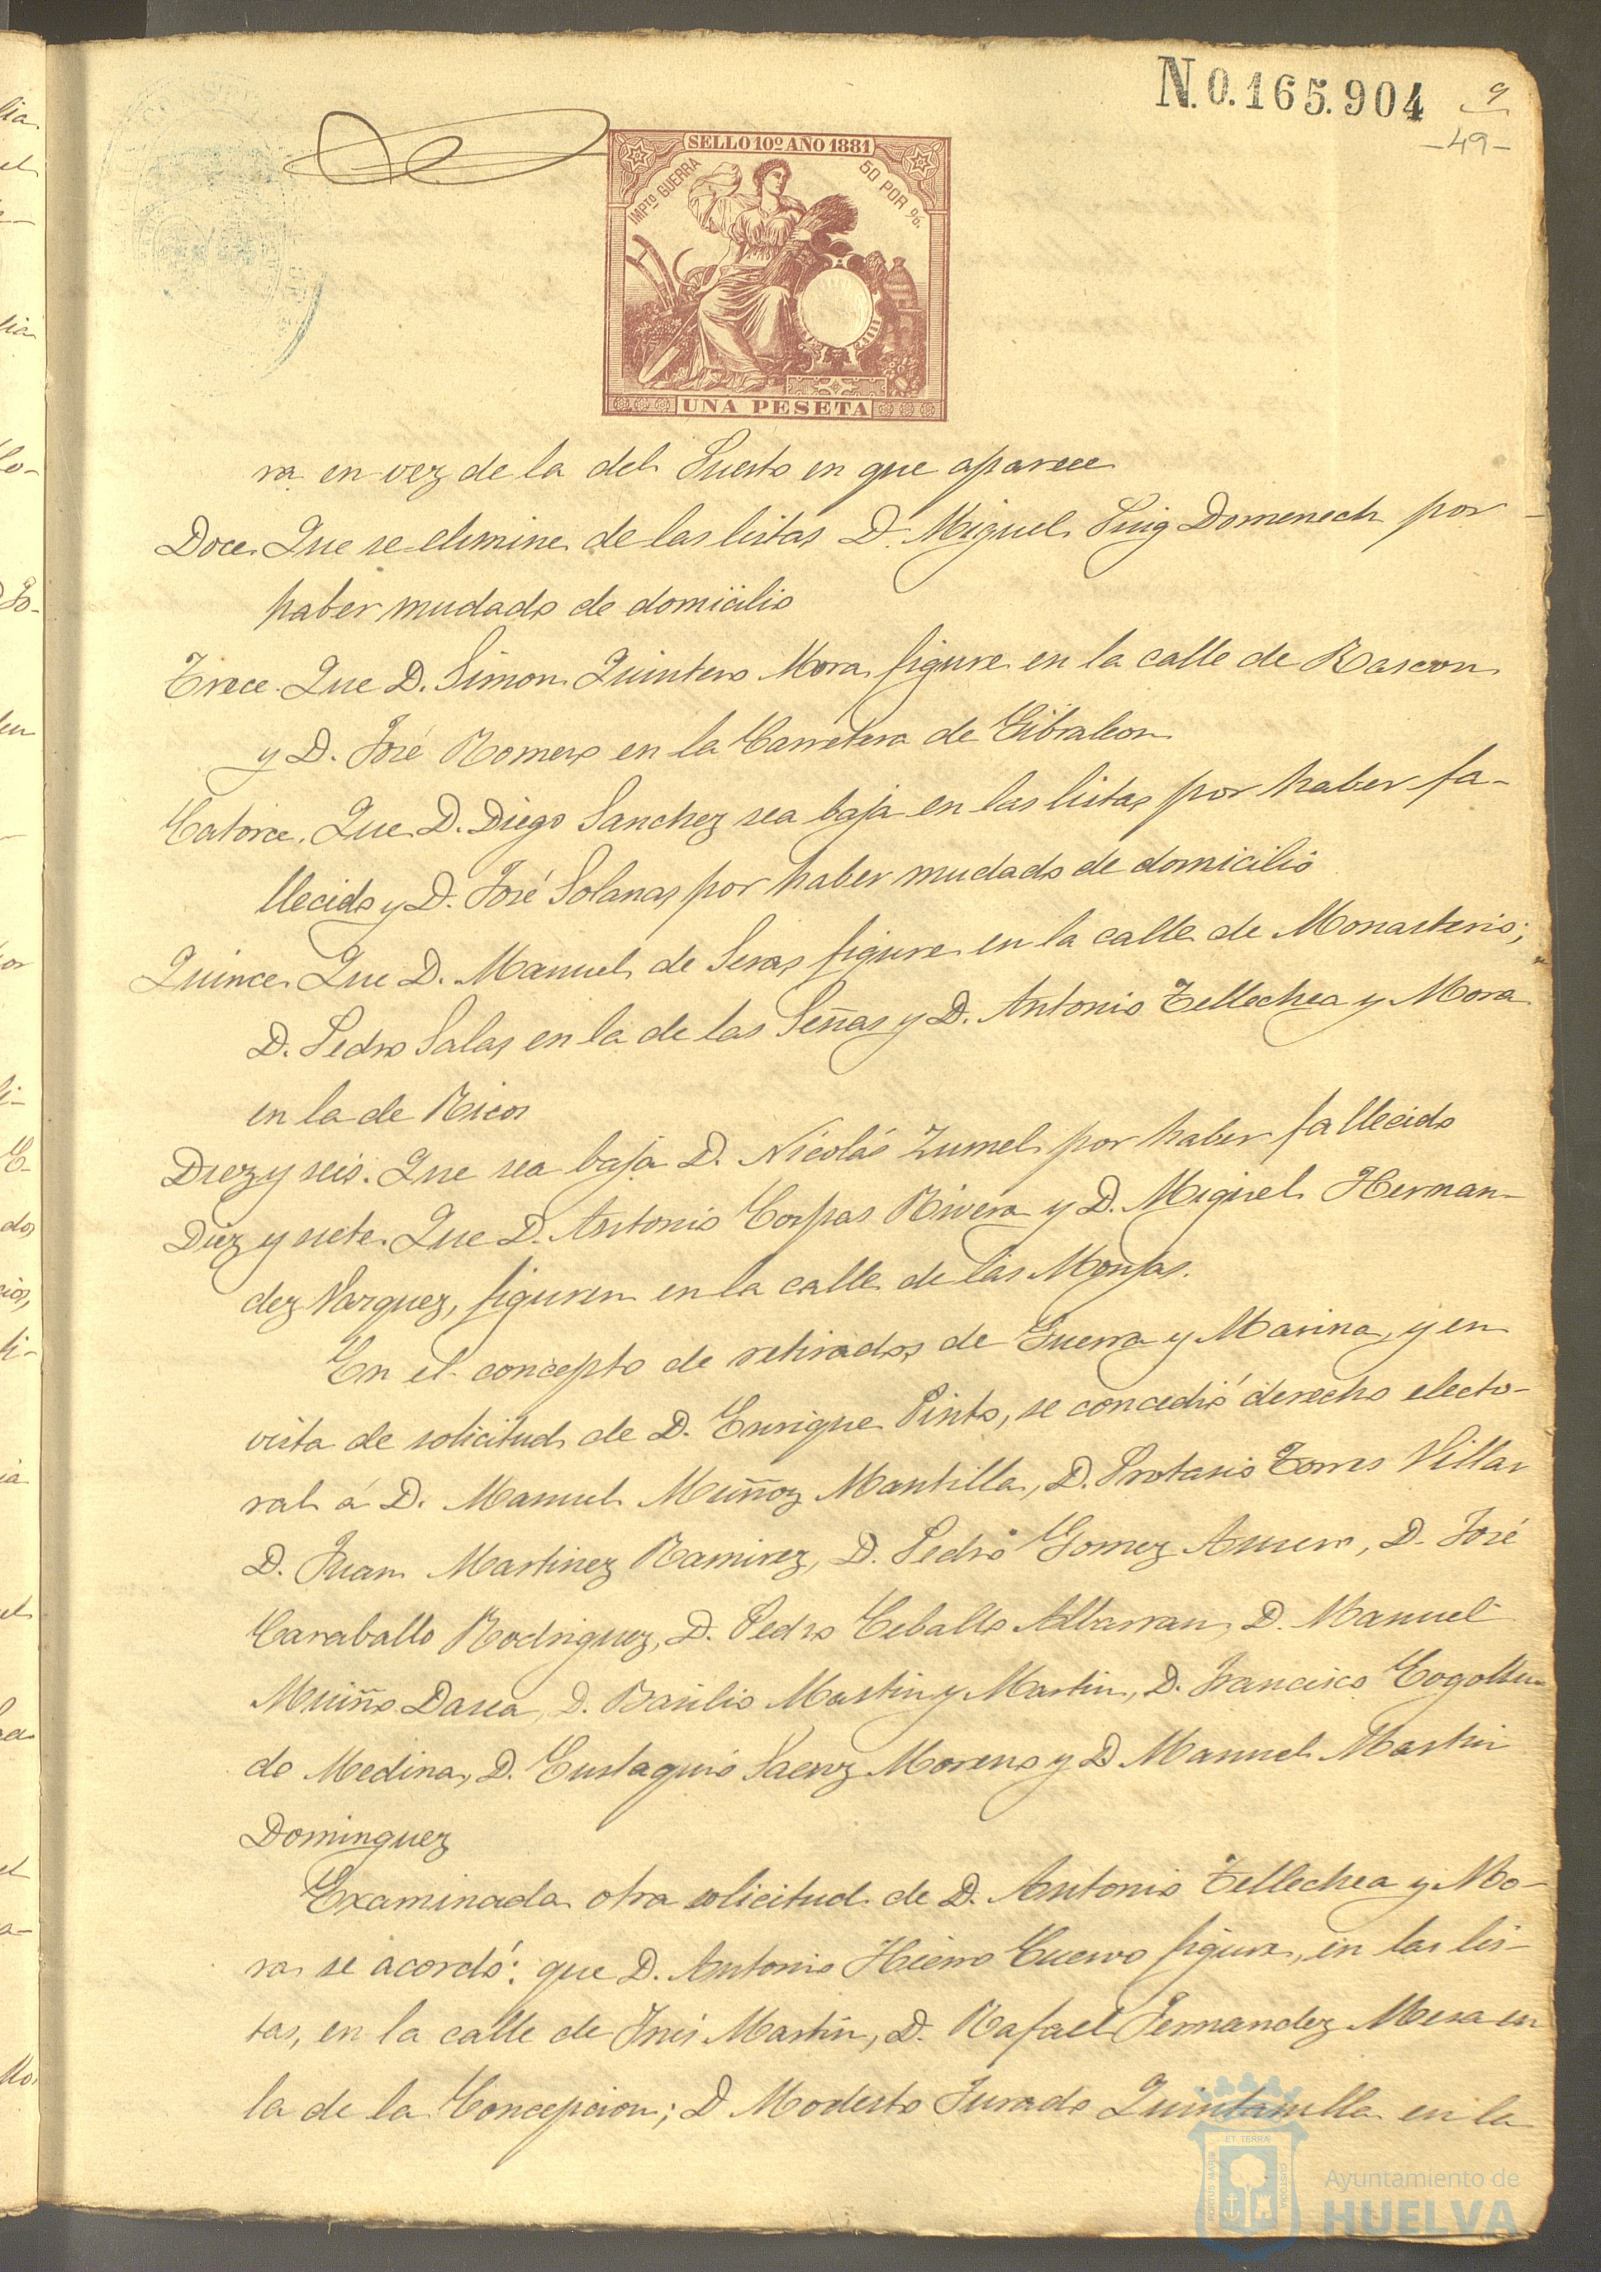 N.0.165.904
9
-49-
SELLO 10º AÑO 1881
IMPTO GUERRA
50 POR %
UNA PESETA
ra en vez de la del Puerto en que aparece
Doce. Que se elimine de las listas D. Miguel Puig Domenech por
haber mudado de domicilio
Trece. Que D. Simon Quintero Mora figure en la calle de Rascon
y D. José Romero en la Carretera de Gibraleon
Catorce. Que D. Diego Sanchez sea baja en las listas por haber fa-
llecido y D. José Solanas por haber mudado de domicilio
Quince. Que D. Manuel de Seras figure en la calle de Monasterio;
D. Pedro Salas en la de las Señas y D. Antonio Tellechea y Mora
en la de Ricos
Diez y seis. Que sea baja D. Nicolás Zumel por haber fallecido
Diez y siete. Que D. Antonio Corpas Rivera y D. Miguel Hernan-
dez Vazquez, figuren en la calle de las Monjas.
En el concepto de retirados de Guerra y Marina, y en
vista de solicitud de D. Enrique Pinto, se concedió derecho electo-
ral á D. Manuel Muñoz Mantilla, D. Protasio Torres Villar
D. Juan Martinez Ramirez, D. Pedro Gomez D. José
Caraballo Rodriguez, D. Pedro Ceballo Albarran, D. Manuel
Muiño D. Basilio Martin y Martin, D. Francisco Cogollu-
do Medina, D. Eustaquio Saenz Moreno y D Manuel Martin
Dominguez
Examinada otra solicitud de D. Antonio Tellechea y Mo-
ra se acordó: que D. Antonio Hierro Cuervo figure, en las lis-
tas, en la calle de Inés Martin, D. Rafael Fernandez Mesa en
la de la Concepcion; D Modesto Jurado Quintanilla en la
ET TERRÆ
PORTUS MARIS
CUSTODIA
Ayuntamiento de
HUELVA